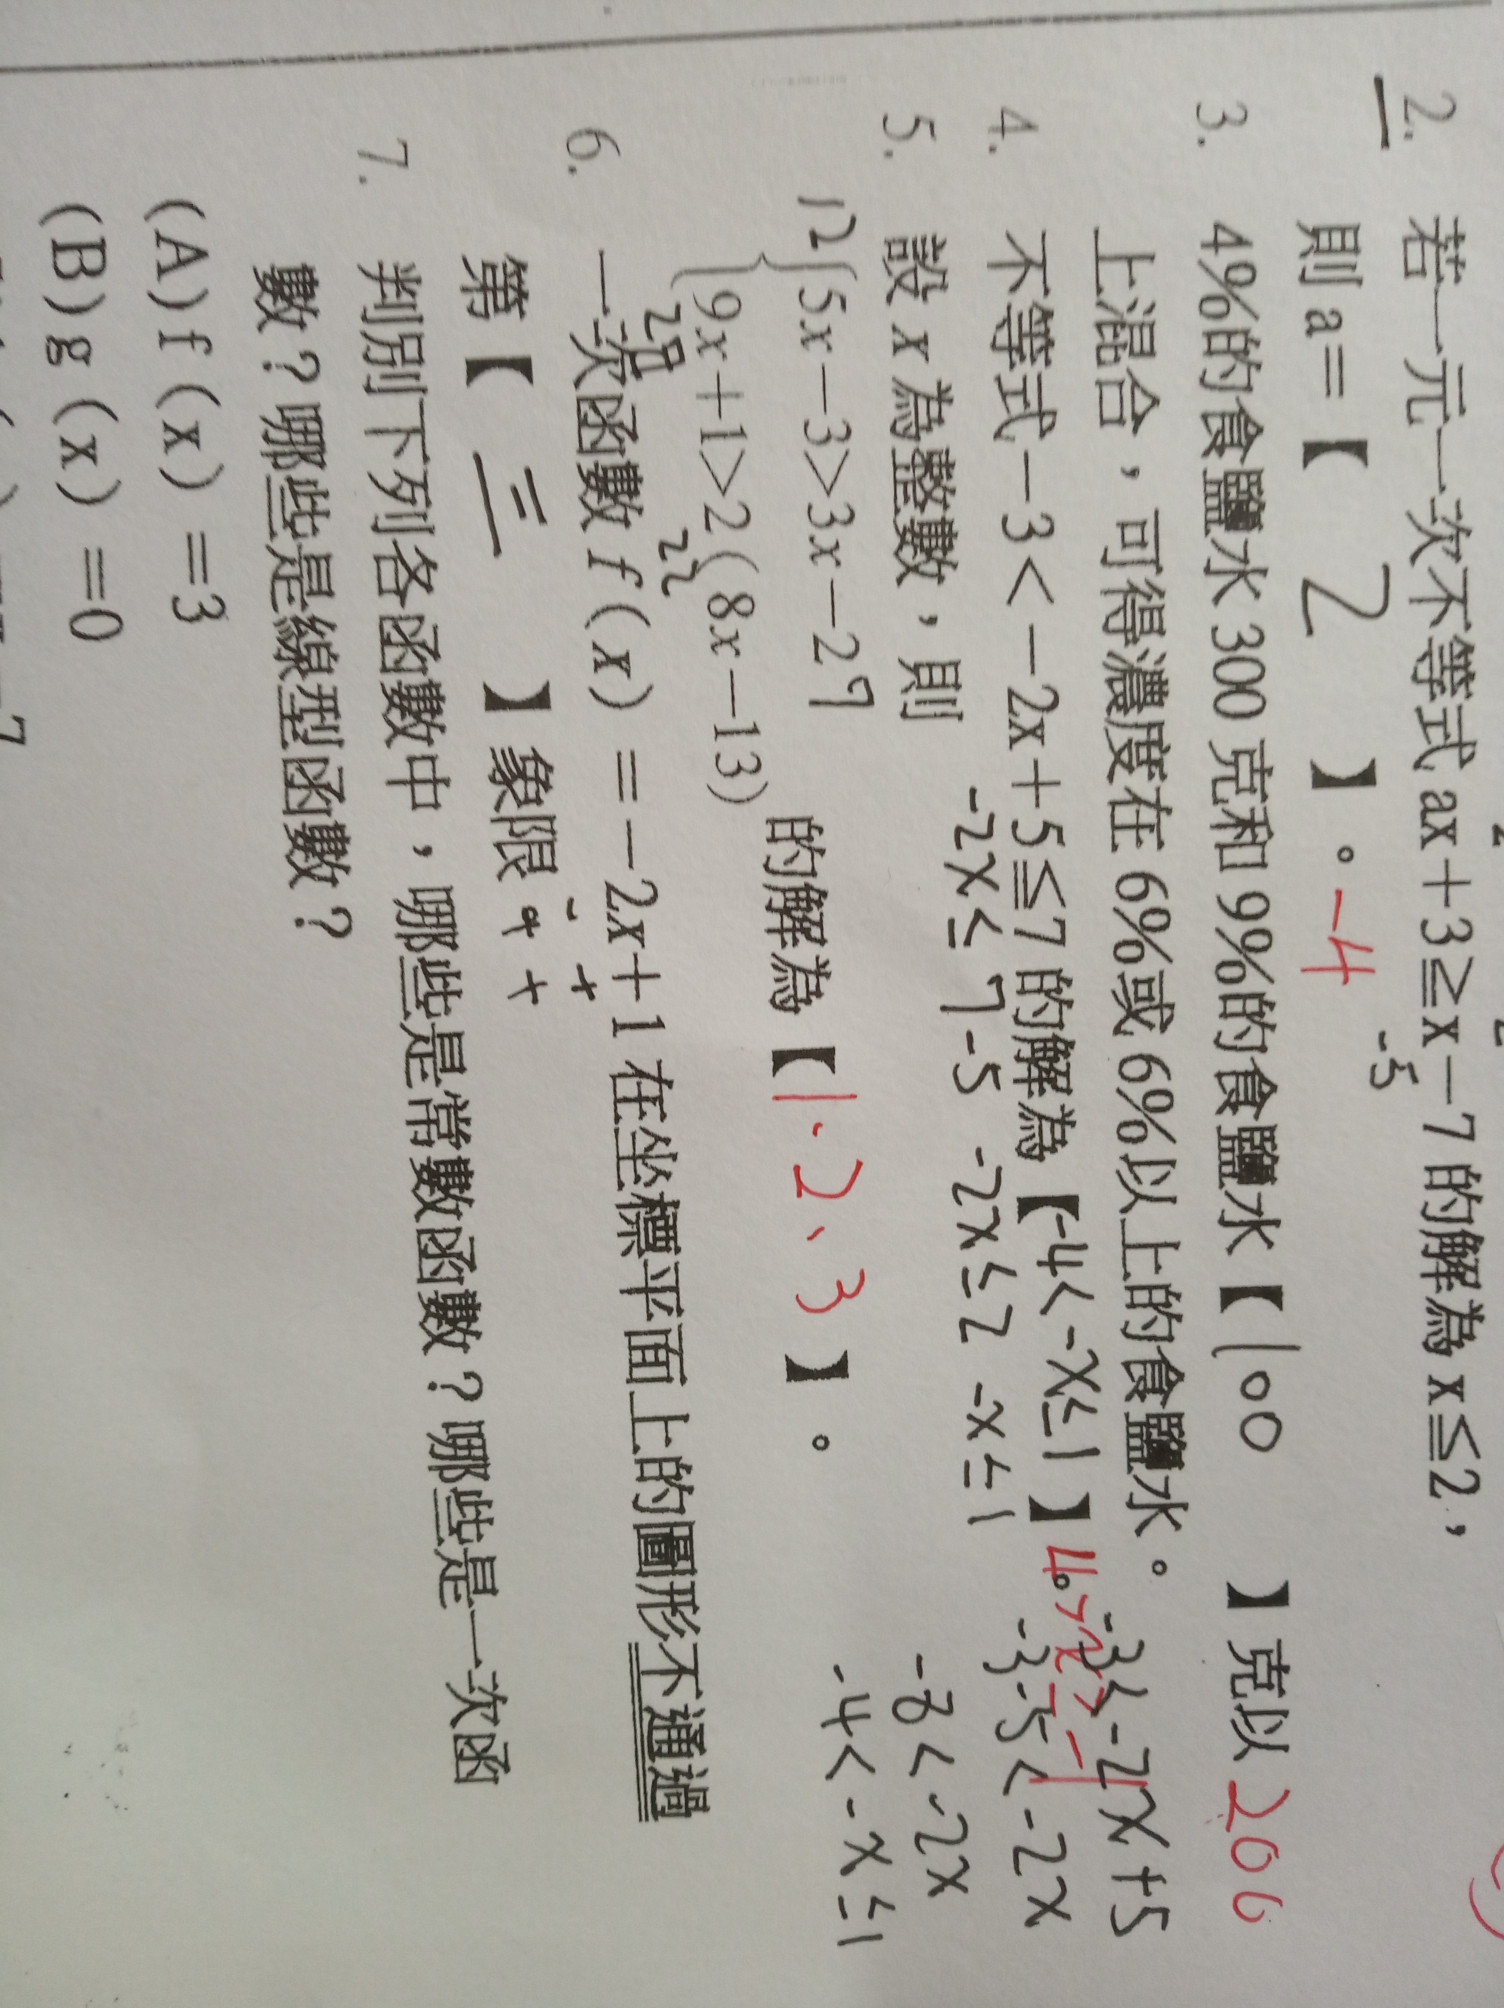 2. 若一元一次不等式 ax+3≧x-7 的解為 x≦2,
-5
則 a=【 2 】。-4
3. 4%的食鹽水 300 克和 9%的食鹽水【 100 】克以 200
上混合，可得濃度在 6%或 6%以上的食鹽水。
4. 不等式-3<-2x+5≦7 的解為【-4<-x≤1】。4>x≥-1
-2x≤7-5 -2x≤2 -x≤1
-3<-2x+5
-3-5<-2x
-8<-2x
-4<-x≤1
5. 設 x 為整數，則
12
{5x-3>3x-2 9
{9x+1>2(8x-13) 的解為【1、2、3】。
6. 一次函數 f(x)=-2x+1 在坐標平面上的圖形不通過
- +
第【 三 】象限
7. 判別下列各函數中，哪些是常數函數？哪些是一次函
數？哪些是線型函數？
(A) f(x)=3
(B) g(x)=0